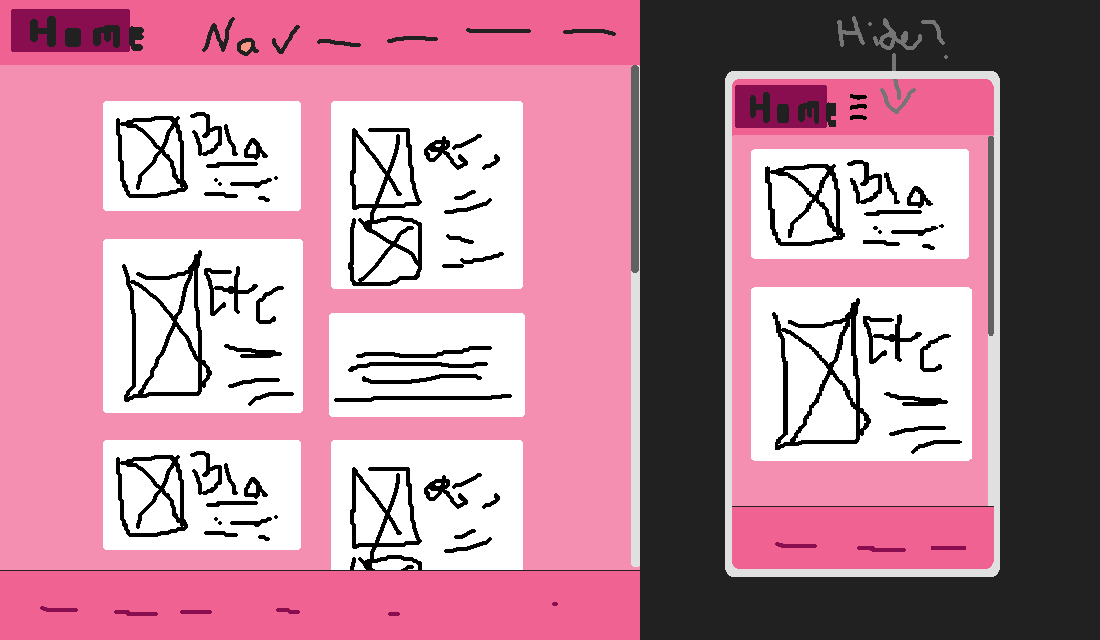 Home Nav
Bla
Etc
Bla
Hide?
Home
Bla
Etc